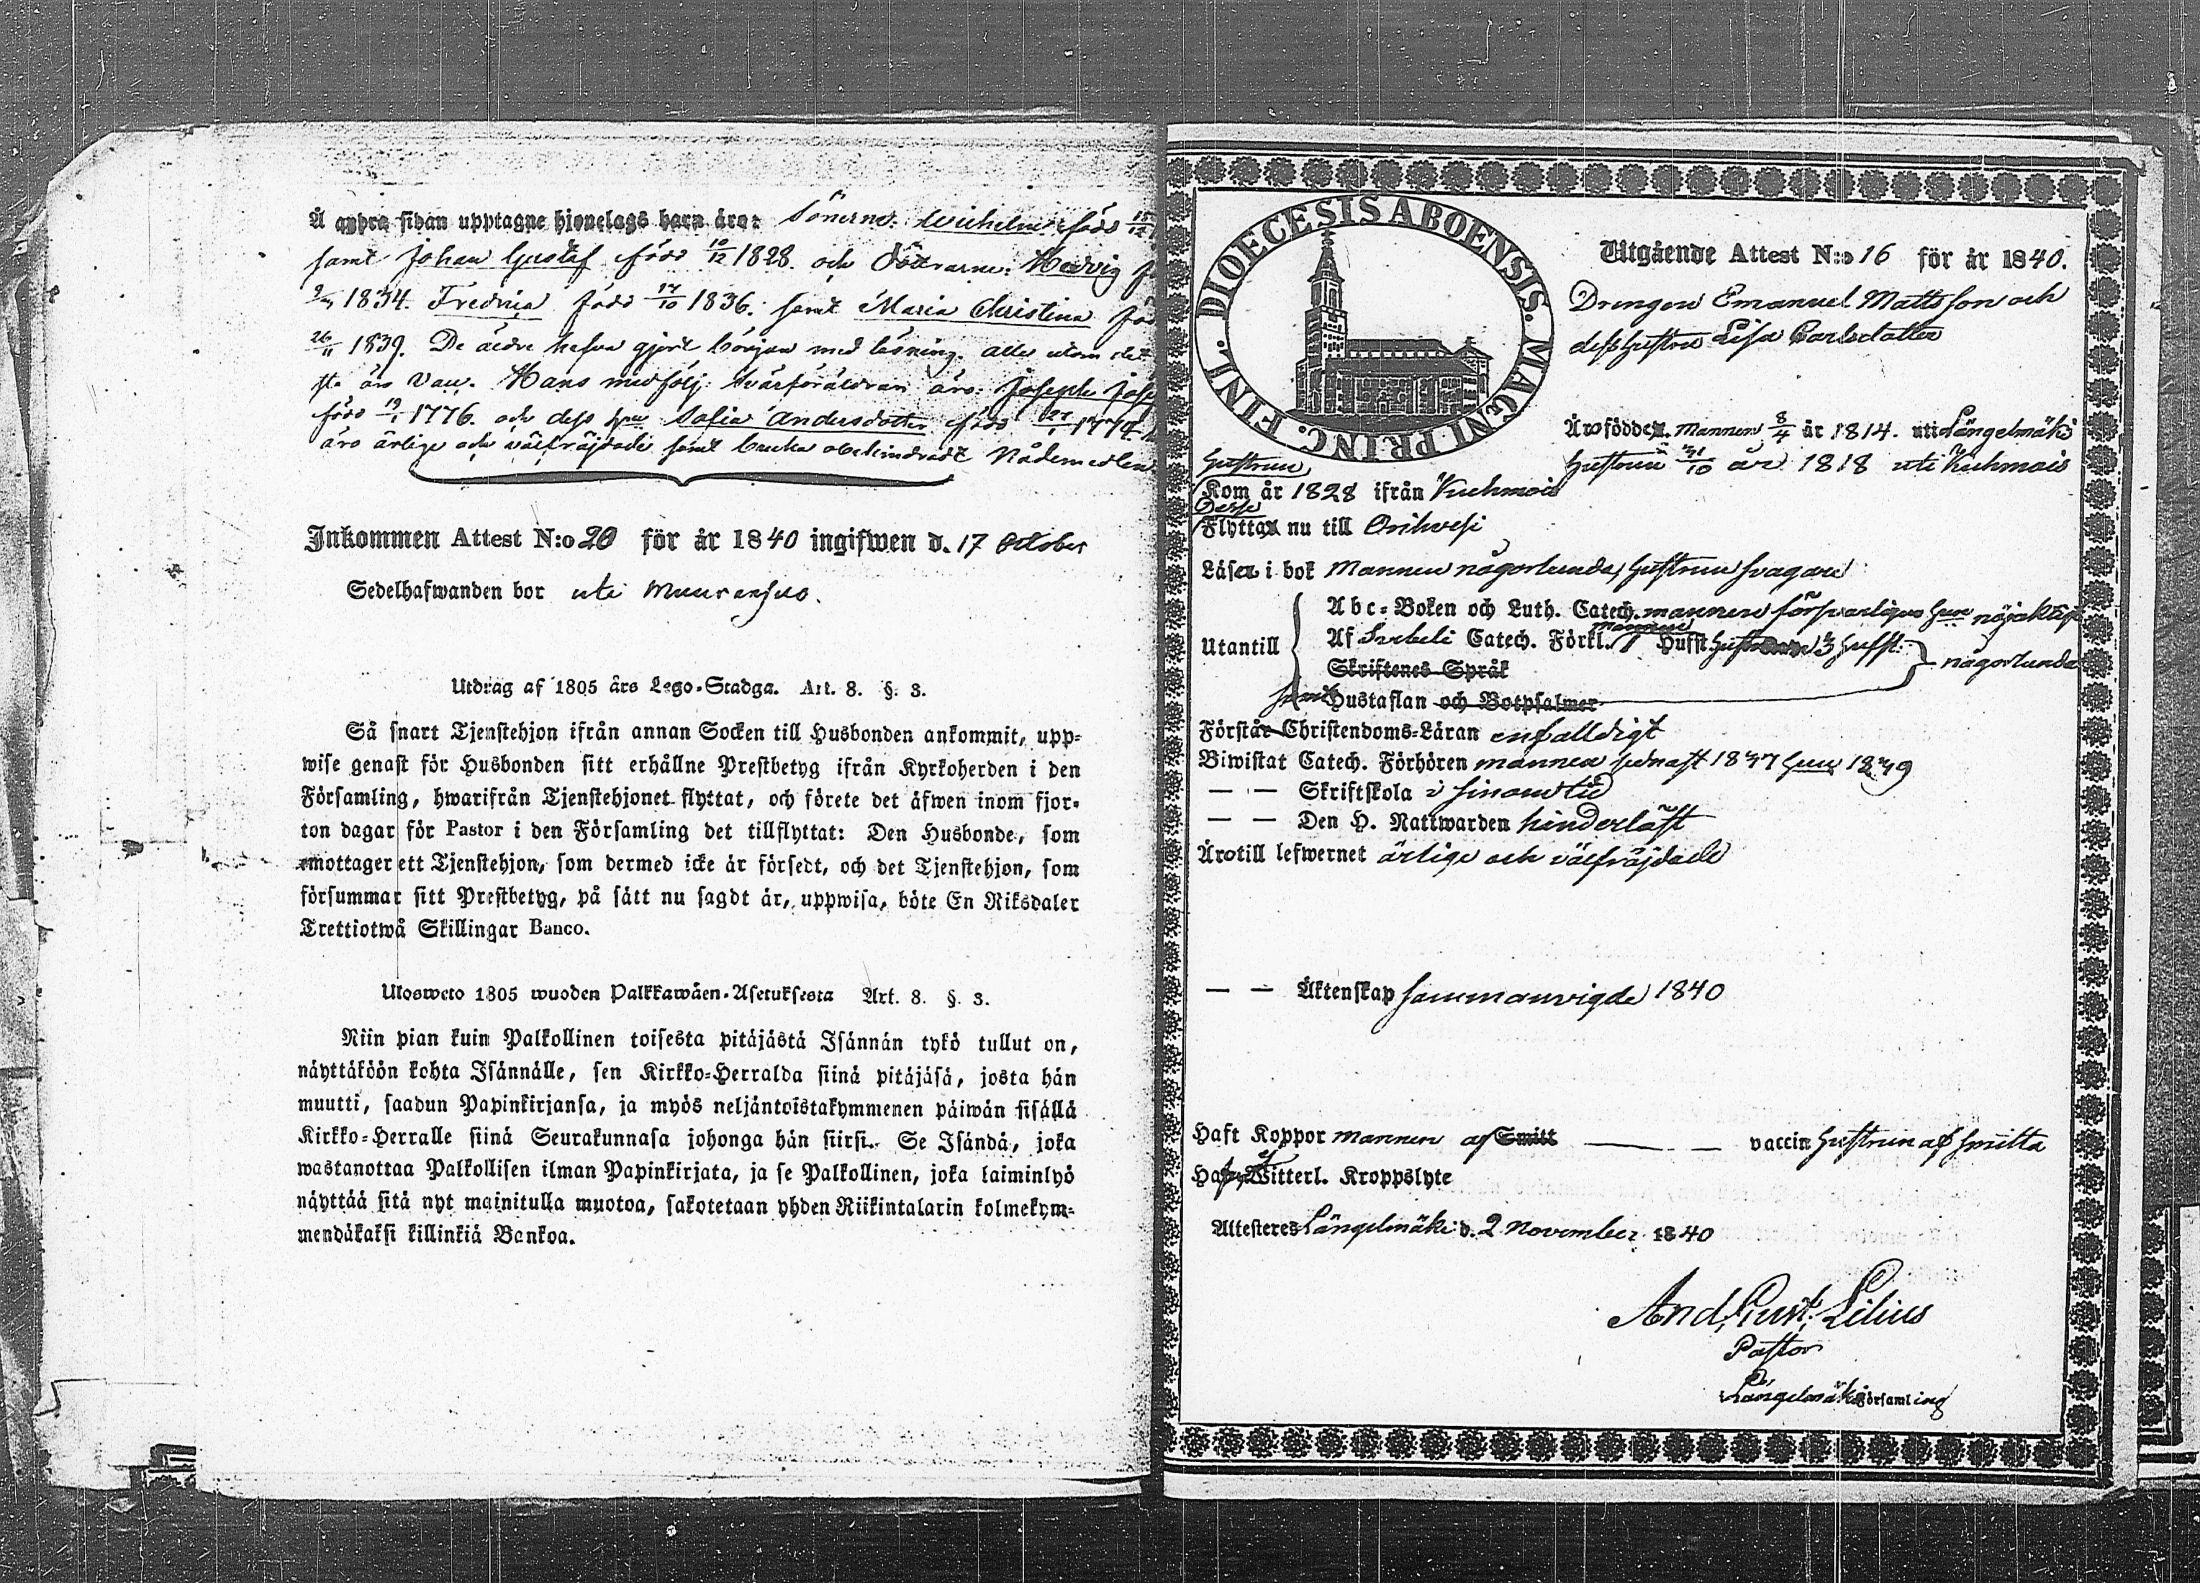 Å andra sidan upptagne hjonelags barn äro: Sönerne: Wilhelm född 15/12
samt Johan Gustaf född 10/12 1828. och Döttrarne: Hedvig
1834. Fredrica född 17/10 1836. samt Maria Christina
26/11 1839. De äldre hafva gjort början med läsning. alla utom det
äro Vacc. Hans medfölj. Svärföräldrar äro: Joseph
född 19/1 1776. och dess hu Sofia Andersdotter född
äro ärlige och välfräjdade samt bruka obehindradt Nådemedlen
Inkommen Attest N:o 20 för år 1840 ingifwen d. 17 October
Sedelhafwanden bor uti Muuransuo.
Utdrag af 1805 års Lego-Stadga. Art. 8. §. 3.
Så snart Tjenstehjon ifrån annan Socken till Husbonden ankommit, upp-
wise genast för Husbonden sitt erhållne Prestbetyg ifrån Kyrkoherden i den
Församling, hwarifrån Tjenstehjonet flyttat, och förete det äfwen inom fjor-
ton dagar för Pastor i den Församling det tillflyttat: Den Husbonde, som
emottager ett Tjenstehjon, som dermed icke är försedt, och det Tjenstehjon, som
försummar sitt Prestbetyg, på sätt nu sagdt är, uppwisa, böte En Riksdaler
Trettiotwå Skillingar Banco.
Ulosweto 1805 wuoden Palkkawäen-Asetuksesta Art. 8. §. 3.
Niin pian kuin Palkollinen toisesta pitäjästä Isännän tykö tullut on,
näyttäköön kohta Isännälle, sen Kirkko-Herralda siinä pitäjäsä, josta hän
muutti, saadun Papinkirjansa, ja myös neljäntoistakymmenen päiwän sisällä
Kirkko-Herralle siinä Seurakunnasa johonga hän siirsi. Se Isändä, joka
wastanottaa Palkollisen ilman Papinkirjata, ja se Palkollinen, joka laiminlyö
näyttää sitä nyt mainitulla muotoa, sakotetaan yhden Riikintalarin kolmekym-
mendäkaksi killinkiä Bankoa.
DIOECESIS ABOENSIS. MAGNI PRINC. FINL.
Utgående Attest N:o 16 för år 1840.
Drengen Emanuel Mattsson och
dess hustru Lisa Carlsdotter
Äro födde, mannen 8/4 år 1814. uti Längelmäki
hustrun 31/10 år 1818 uti Kuhmois
Hustrun
Kom år 1828 ifrån Kuhmois
Desse
Flytta nu till Orihvesi
Läsa i bok Mannen någorlunda, hustrun svagare
Utantill
Abc-Boken och Luth. Catech. mannen försvarligen hun nöjaktigt
Af Svebeli Catech. Förkl. mannen 1 Hufst hustrun 3 hufst. någorlunda
Skriftenes Språk
samt Hustaflan och Botpsalmer
Förstår Christendoms-Läran enfalldigt
Biwistat Catech. Förhören mannen sednast 1837 hun 1839
— — Skriftskola i sinom tid
— — Den H. Nattwarden hinderlöst
Äro till lefwernet ärlige och välfräjdade
— — Äktenskap sammanvigde 1840
Haft Koppor mannen af Smitt — — vaccin hustrun af smitta
Hafva Witterl. Kroppslyte
Attesteres Längelmäki d. 2 November 1840
And. Gust. Lilius
Pastor
Längelmäki Församling